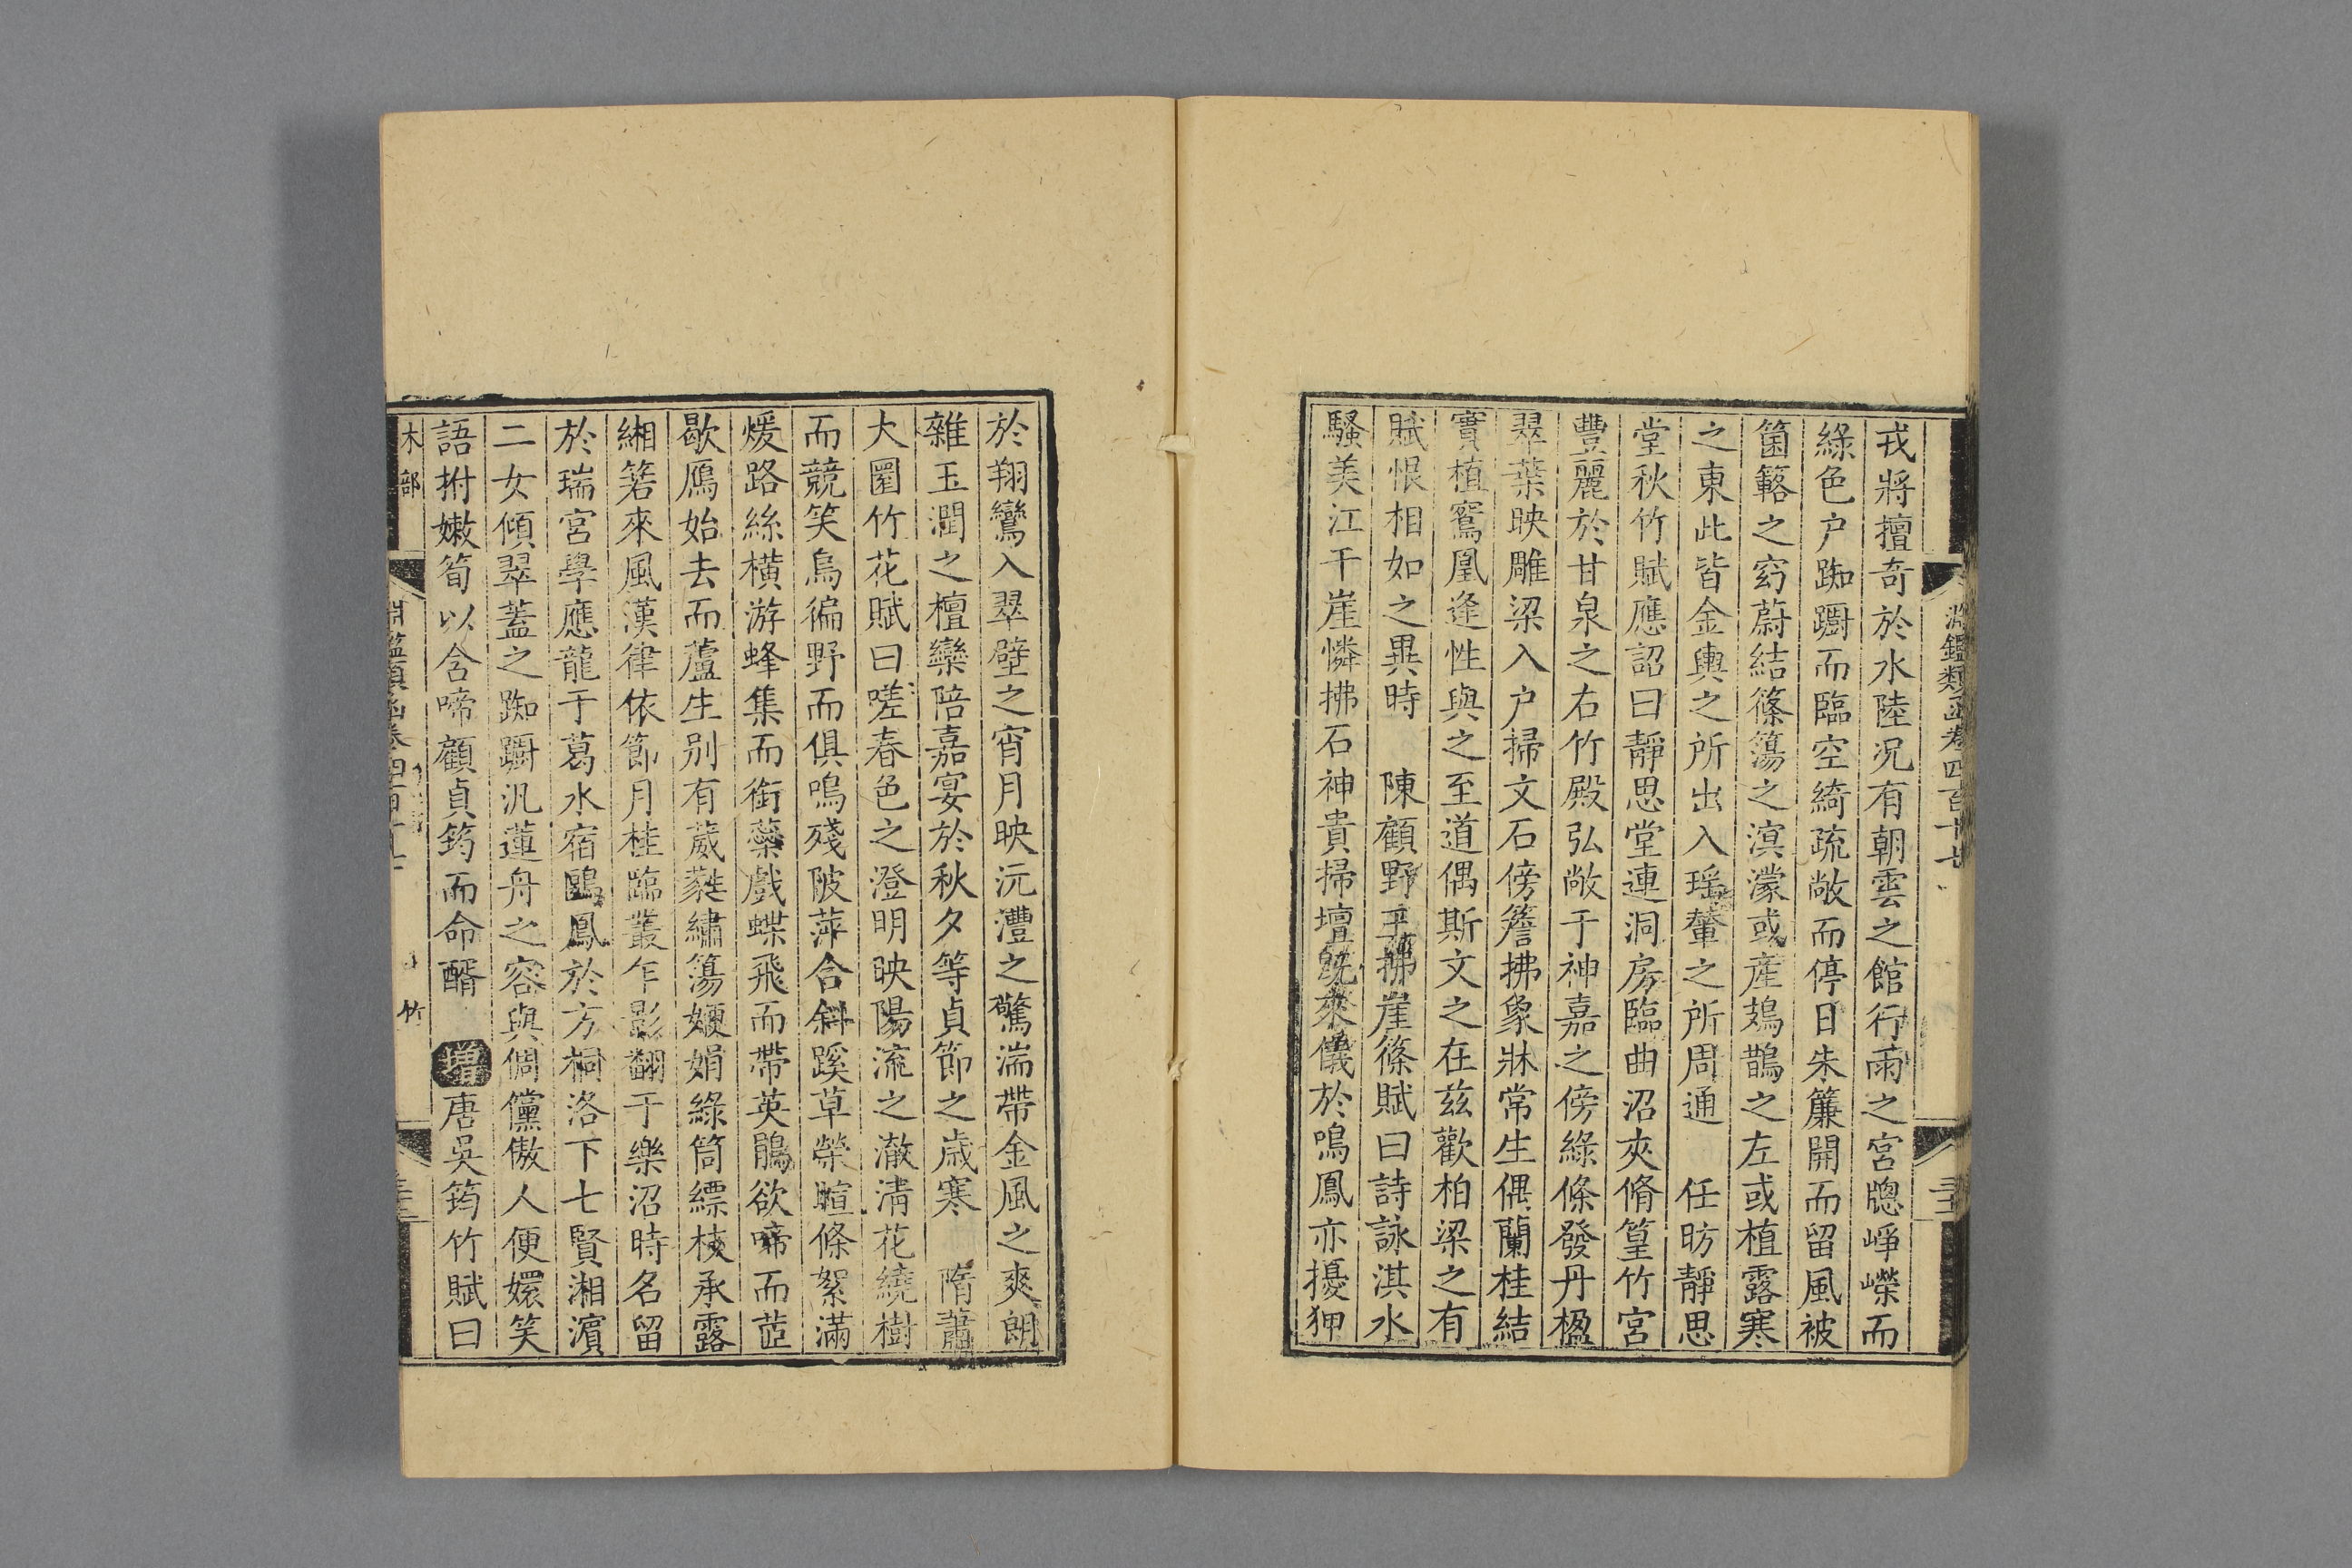 淵鑑類函卷四百十七
戎將擅奇於水陸况有朝雲之館行雨之宮牕崢嶸而
綠色户踟躕而臨空綺疏敞而停日朱簾開而留風被
箘簵之窈蔚結篠簜之溟濛或產鳷鵲之左或植露寒
之東此皆金輿之所出入瑶輦之所周通　任昉靜思
堂秋竹賦應詔曰靜思堂連洞房臨曲沼夾脩篁竹宮
豐麗於甘泉之右竹殿弘敞于神嘉之傍綠條發丹楹
翠葉映雕梁入户掃文石傍簷拂象牀常生偶蘭桂結
實植鴛凰逢性與之至道偶斯文之在兹歡柏梁之有
賦恨相如之異時　陳顧野王拂崖篠賦曰詩詠淇水
騷美江干崖憐拂石神貴掃壇既來儀於鳴鳳亦擾狎
於翔鸞入翠壁之宵月映沅澧之驚湍帶金風之爽朗
雜玉潤之檀欒陪嘉宴於秋夕等貞節之歲寒　隋蕭
大圜竹花賦曰嗟春色之澄明映陽流之澈清花繞樹
而競笑鳥徧野而俱鳴殘陂萍合斜蹊草縈暄條絮滿
煖路絲橫游蜂集而銜蘂戲蝶飛而帶英鵑欲啼而茝
歇鴈始去而蘆生别有葳蕤繡簜㛹娟綠筒縹枝承露
緗箬來風漢律依節月桂臨叢乍影翻于樂沼時名留
於瑞宮學應龍于葛水宿鷗鳳於方桐洛下七賢湘濵
二女傾翠葢之踟躕汎蓮舟之容與倜儻傲人便嬛笑
語拊嫩筍以含啼顧貞筠而命醑　增唐吳筠竹賦曰
木部
竹